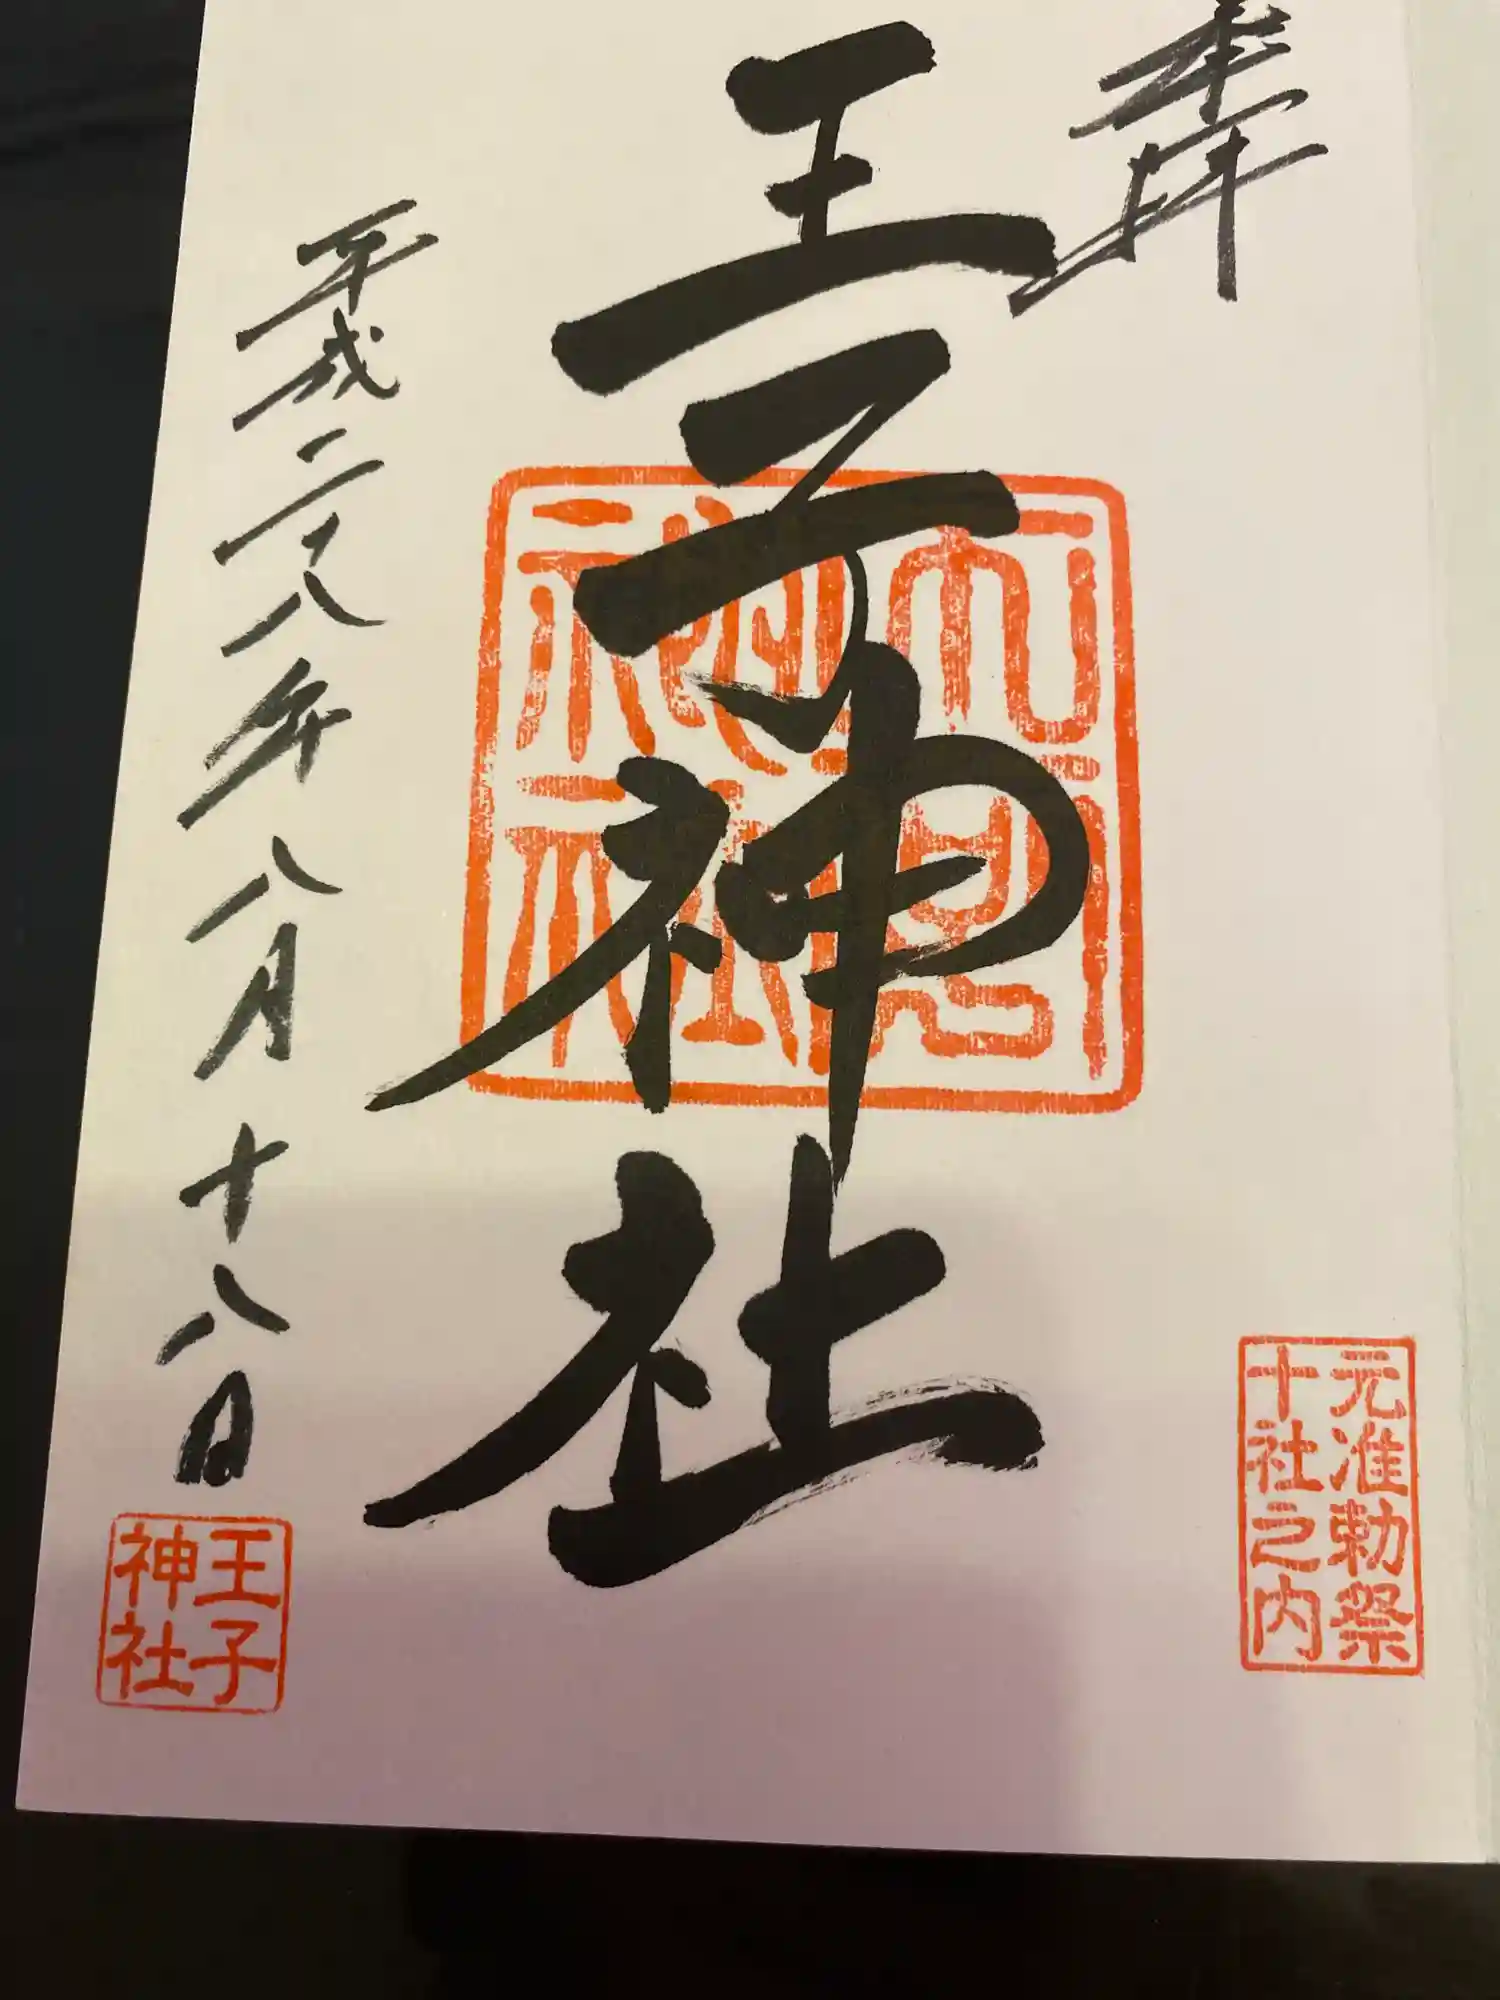 奉拝
元准勅祭
十社之内
王子神社
王子
神社
平成二十八年八月十八日
王子
神社